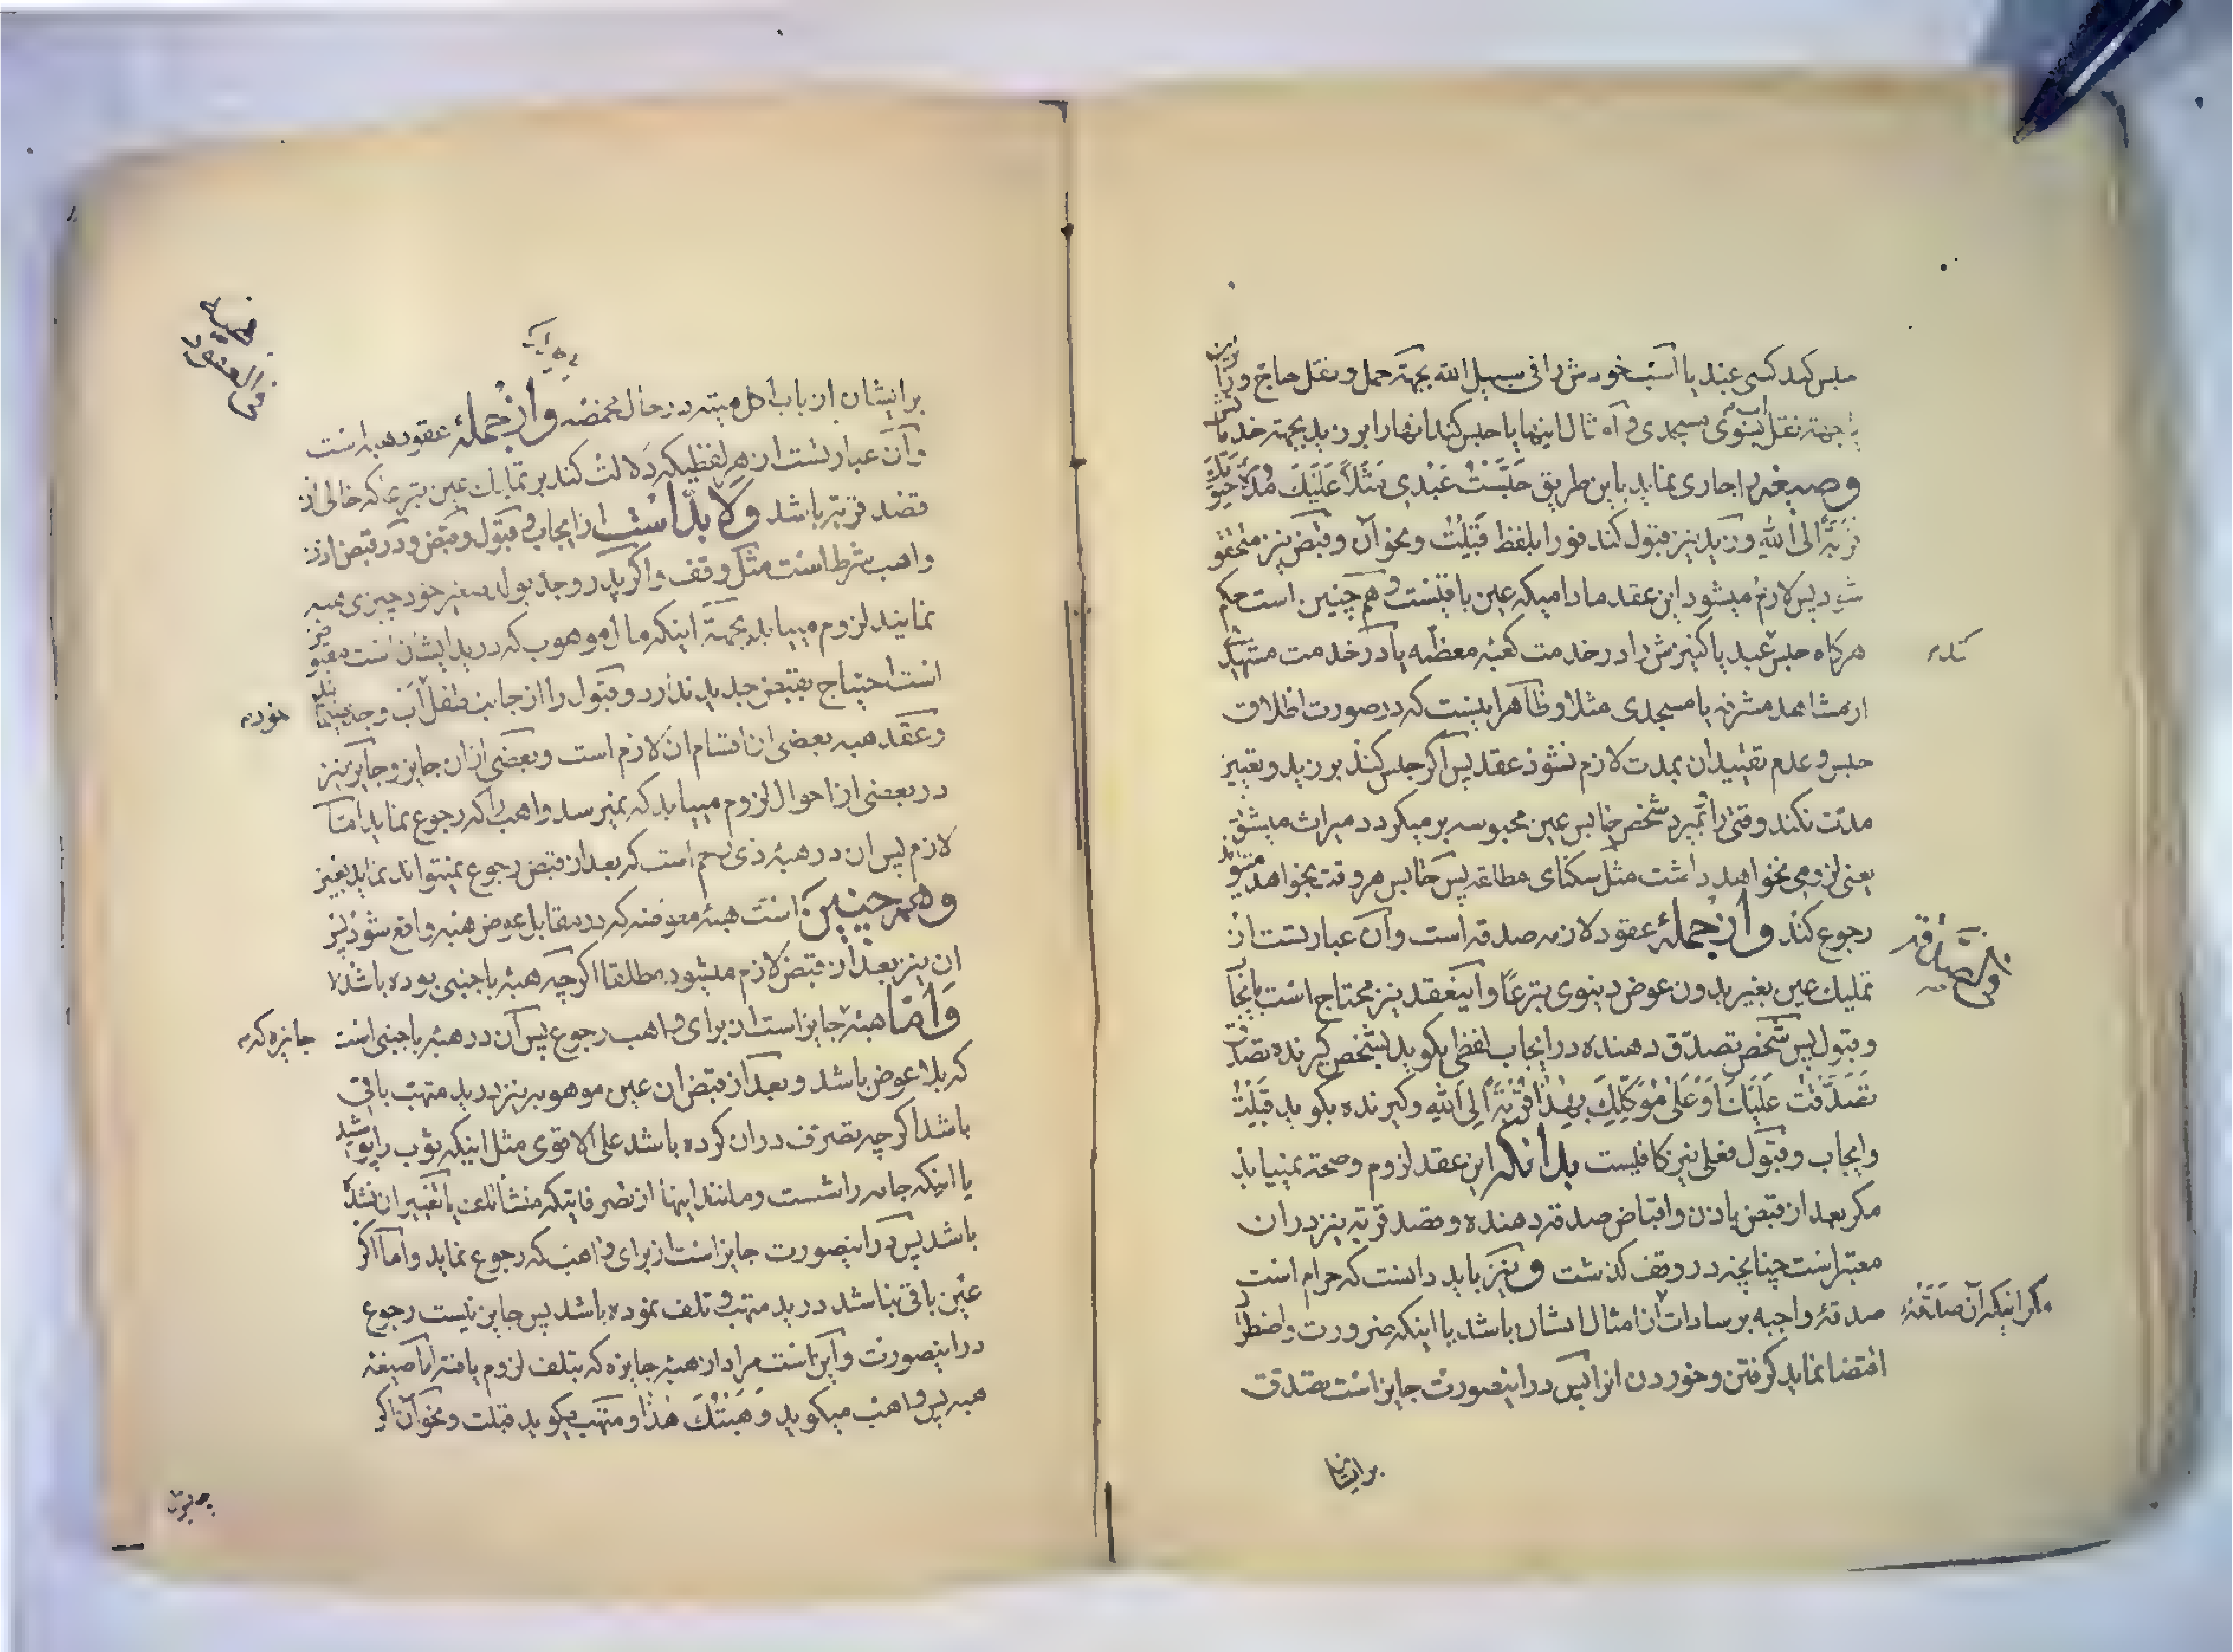 حبس کند کسی عبد یا اسب خودش را فی سبیل الله بجهة حمل و نقل حاج و زوّار
یا بجهة نقل اینوی مسجدی و امثال اینها یا حبس کند انها را بر زید بجهة خدمات
و صیغه را جاری نماید باین طریق حَبَّسْتُ عَبْدی مثلاً عَلَیْكَ مُدَّة حیوتك
قربةً الی اللهِ و زید نیز قبول کند فورا بلفظ قَبِلْتُ و نحو آن و قبض نیز متحقق
شود پس لازم میشود این عقد مادامیکه عین باقیست و هم چنین است حکم
هرکاه حبس عبد یا کنیزش را در خدمت کعبه معظمه یا در خدمت مشهد
کند
از مشاهد مشرفه یا مسجدی مثلا و ظاهرا اینست که در صورت اطلاق
حبس و عدم تقیید ان بمدت لازم نشود عقد پس اکر حبس کند بر زید و تعیین
مدت نکند وقتی را بمیرد شخص حابس عین محبوسه برمیکردد میراث میشود
یعنی لزومی نخواهد داشت مثل سکنای مطلقه پس حابس هر وقت بخواهد میتواند
رجوع کند و از جملهٔ عقود لازمه صدقه است و آن عبارتست از
فی الصدقه
تملیك عین بغیر بدون عوض دنیوی تبرعاً و اینعقد نیز محتاج است بایجاب
و قبول پس شخص تصدق دهنده در ایجاب لفظی بکوید بشخص کیرنده تصدقت
تَصَدَّقْتُ عَلَیْكَ اَوْ عَلیٰ مُوَکِّلِكَ بِهٰذا قُرْبَةً اِلی اللهِ و کیرنده بکوید قَبِلْتُ
و ایجاب و قبول فعلی نیز کافیست بدانکه این عقد لزوم و صحة نمییابد
مکر بعد از قبض باذن و اقباض صدقه دهنده و قصد قربة نیز در ان
معتبر است چنانچه در وقف کذشت و نیز باید دانست که حرام است
صدقهٔ واجبه بر سادات از امثال ایشان باشد یا اینکه ضرورت و اضطرار
مکر اینکه آن صدقه
اقتضا نماید کرفتن و خوردن انرا پس در اینصورت جایز است تصدق
برایشان
برایشان از باب اکل میته در حال مخمصه و از جملهٔ عقود هبه است
و آن عبارتست از هر لفظیکه دلالت کند بر تملیك عین تبرعا که خالی از
قصد قربة باشد و لابدّ است از ایجاب و قبول و قبض و در قبض اذن
واهب شرط است مثل وقف و اکر پدر و جد بولد صغیر خود چیزی هبه
نمایند لزوم مییابد بجهة اینکه مال موهوب که در ید ایشان است مقبوض
است احتیاج بقبض جدید ندارد و قبول را از جانب طفل اب و جد مینماید
و عقد هبه بعضی از اقسام ان لازم است و بعضی از ان جایز و جایز نیز
در بعضی از احوال لزوم مییابد که نمیرسد واهب را که رجوع نماید اما
لازم پس ان در هبهٔ ذی رحم است که بعد از قبض رجوع نمیتواند نماید بغیر
و هم چنین است هبهٔ معوضه که در مقابل عوض هبه واقع شود پس
ان نیز بعد از قبض لازم میشود مطلقا اکرچه هبهٔ باجنبی بوده باشد
و اما هبهٔ جایز است از برای واهب رجوع پس آن در هبهٔ باجنبی است
جایزه که
که بلا عوض باشد و بعد از قبض ان عین موهوبه نیز در ید متهب باقی
باشد اکرچه تصرف در ان کرده باشد علی الاقوی مثل اینکه ثوب را پوشید
یا اینکه جامه را شست و مانند اینها از تصرفاتیکه منشأ تلف یا تغییر ان نشده
باشد پس در اینصورت جایز است از برای واهب که رجوع نماید و اما اکر
عین باقی نباشد در ید متهب و تلف نموده باشد پس جایز نیست رجوع
در اینصورت و این است مراد از هبهٔ جایزه که بتلف لزوم یافته اما صیغهٔ
هبه پس واهب میکوید وَهَبْتُكَ هٰذا و متهب میکوید قبلت و نحو آن اکر